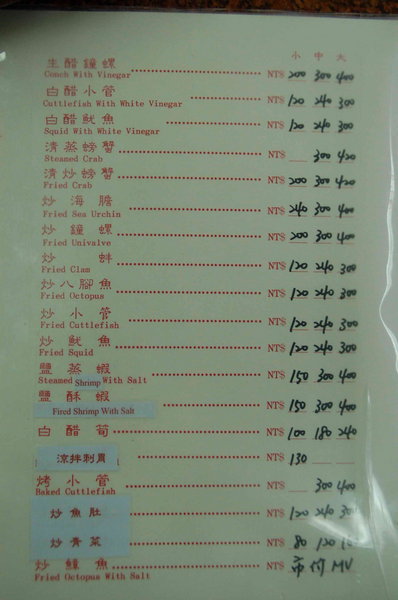 小 中 大
生醋鐘螺 NT$ 200 300 400
Conch With Vinegar
白醋小管 NT$ 120 240 300
Cuttlefish With White Vinegar
白醋魷魚 NT$ 120 240 300
Squid With White Vinegar
清蒸螃蟹 NT$ 300 420
Steamed Crab
清炒螃蟹 NT$ 200 300 420
Fried Crab
炒海膽 NT$ 240 300 400
Fried Sea Urchin
炒鐘螺 NT$ 200 300 400
Fried Univalve
炒蚌 NT$ 120 240 300
Fried Clam
炒八腳魚 NT$ 120 240 300
Fried Octopus
炒小管 NT$ 120 240 300
Fried Cuttlefish
炒魷魚 NT$ 120 240 300
Fried Squid
鹽蒸蝦 NT$ 150 300 400
Steamed Shrimp With Salt
鹽酥蝦 NT$ 150 300 400
Fired Shrimp With Salt
白醋筍 NT$ 100 180 240
涼拌刺胃 NT$ 130
烤小管 NT$ 300 400
Baked Cuttlefish
炒魚肚 NT$ 120 240 300
炒青菜 NT$ 80 120
炒鱆魚 NT$ 市價 MV
Fried Octopus With Salt